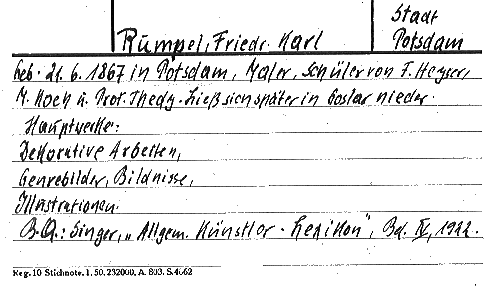 Stadt
Rumpel, Friedr. Karl Potsdam
Geb. 21. 6. 1867 in Potsdam, Maler, Schüler von F. Heyser,
M. Koch u. Prof. Thedy. Ließ sich später in Goslar nieder.
Hauptwerke:
Dekorative Arbeiten,
Genrebilder, Bildnisse,
Illustrationen.
B.Q.: Singer, „Allgem. Künstler-Lexikon", Bd. IV, 1922.
Reg. 10 Stichnote. 1. 50. 232000. A. 803. S. 4662